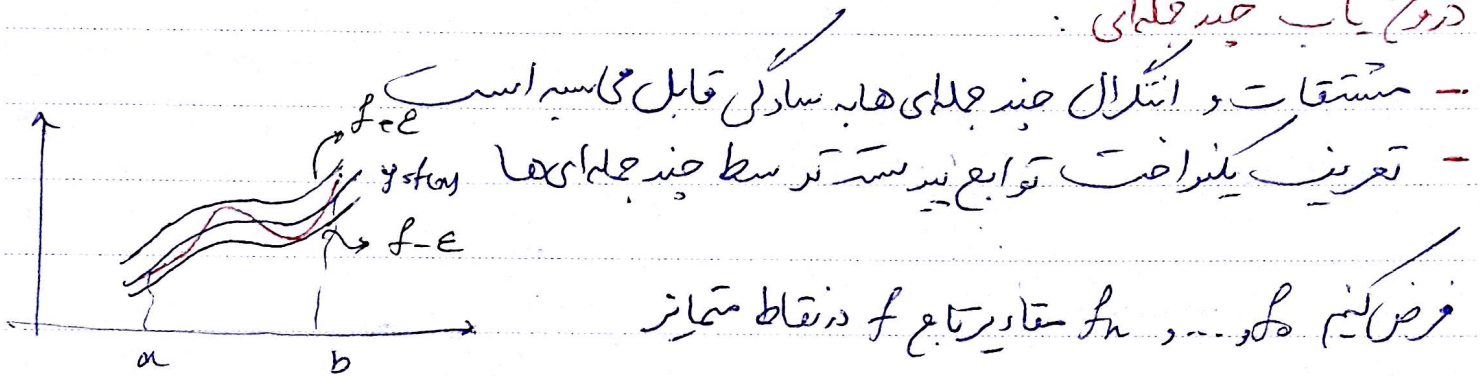 درون یاب چندجمله‌ای :
- مشتقات و انتگرال چندجمله‌ای ها به سادگی قابل محاسبه است
f+ε
- تعریف یکنواخت توابع پیوسته توسط چندجمله‌ای ها
y=f(x)
f-ε
فرض کنیم f₀ , ... , fₙ مقادیر تابع f در نقاط متمایز
a b